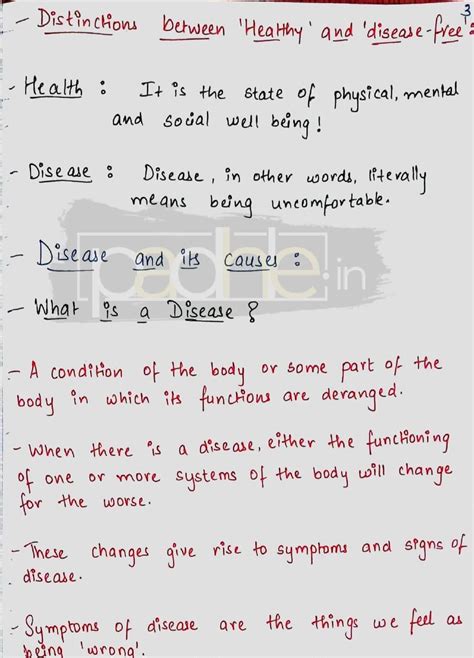 3
- Distinctions between 'Healthy' and 'disease-free':
- Health : It is the state of physical, mental
and social well being!
- Disease : Disease, in other words, literally
means being uncomfortable.
padhle.in
- Disease and its causes :
- What is a Disease ?
- A condition of the body or some part of the
body in which its functions are deranged.
- When there is a disease, either the functioning
of one or more systems of the body will change
for the worse.
- These changes give rise to symptoms and signs of
disease.
- Symptoms of disease are the things we feel as
being 'wrong'.